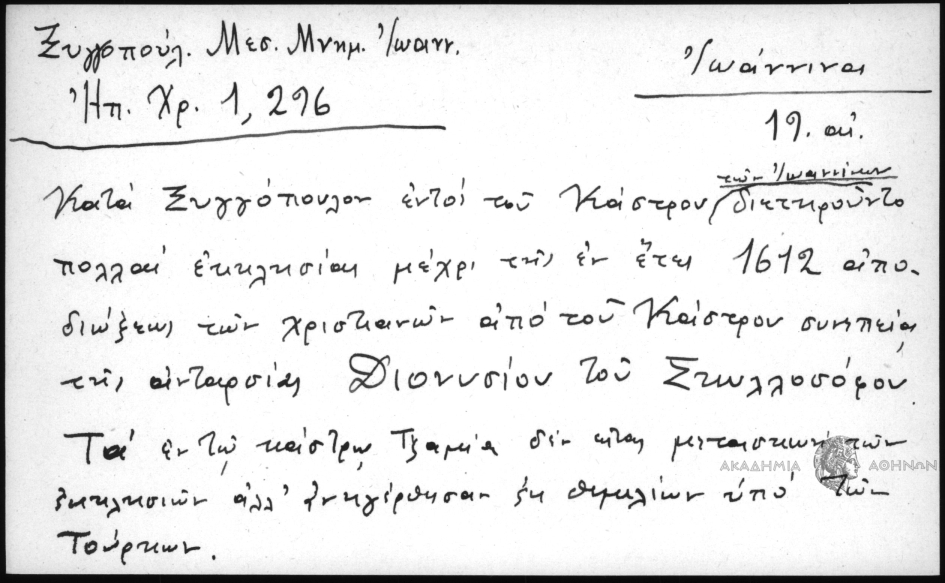 Ξυγγοπούλ. Μεσ. Μνημ. Ἰωανν.
Ἠπ. Χρ. 1, 296
Ἰωάννινα
19. αἰ.
Κατά Ξυγγόπουλον ἐντός τοῦ Κάστρου τῶν Ἰωαννίνων διετηροῦντο
πολλαί ἐκκλησίαι μέχρι τῆς ἐν ἔτει 1612 ἀπο-
διώξεως τῶν χριστιανῶν ἀπό τοῦ Κάστρου συνεπείᾳ
τῆς ἀνταρσίας Διονυσίου τοῦ Σκυλλοσόφου.
Τά ἐν τῷ κάστρῳ Τζαμία δέν εἶναι μετασκευή τῶν
ἐκκλησιῶν ἀλλ' ἀνηγέρθησαν ἐκ θεμελίων ὑπό τῶν
Τούρκων.
ΑΚΑΔΗΜΙΑ ΑΘΗΝΩΝ